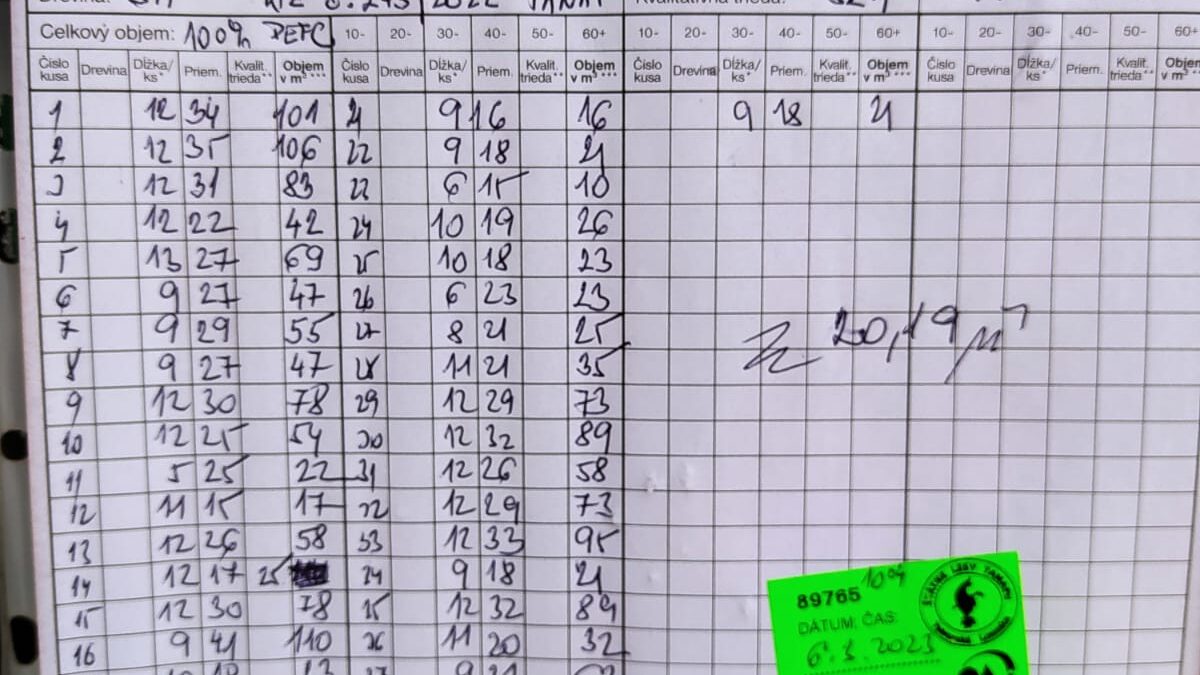 Kvalitatívna trieda:
Celkový objem: 100% PEFC 10- 20- 30- 40- 50- 60+ 10- 20- 30- 40- 50- 60+ 10- 20- 30- 40- 50- 60+
Číslo kusa Drevina Dĺžka/ks* Priem. Kvalit. trieda** Objem v m³*** Číslo kusa Drevina Dĺžka/ks* Priem. Kvalit. trieda** Objem v m³*** Číslo kusa Drevina Dĺžka/ks* Priem. Kvalit. trieda** Objem v m³*** Číslo kusa Drevina Dĺžka/ks* Priem. Kvalit. trieda** Objem v m³
1 12 34 101 21 9 16 16 9 18 21
2 12 35 106 22 9 18 21
3 12 31 83 6 15 10
4 12 22 42 24 10 19 26
5 13 27 69 25 10 18 23
6 9 27 47 26 6 23 23
7 9 29 55 27 8 21 25
8 9 27 47 28 11 21 35
9 12 30 78 29 12 29 73
10 12 25 54 30 12 32 89
11 5 25 22 31 12 26 58
12 11 15 17 32 12 29 73
13 12 26 58 33 12 33 95
14 12 17 25 34 9 18 21
15 12 30 78 35 12 32 89
16 9 41 110 36 11 20 32
20,19 m³
89765
DÁTUM: ČAS:
6.3.2023